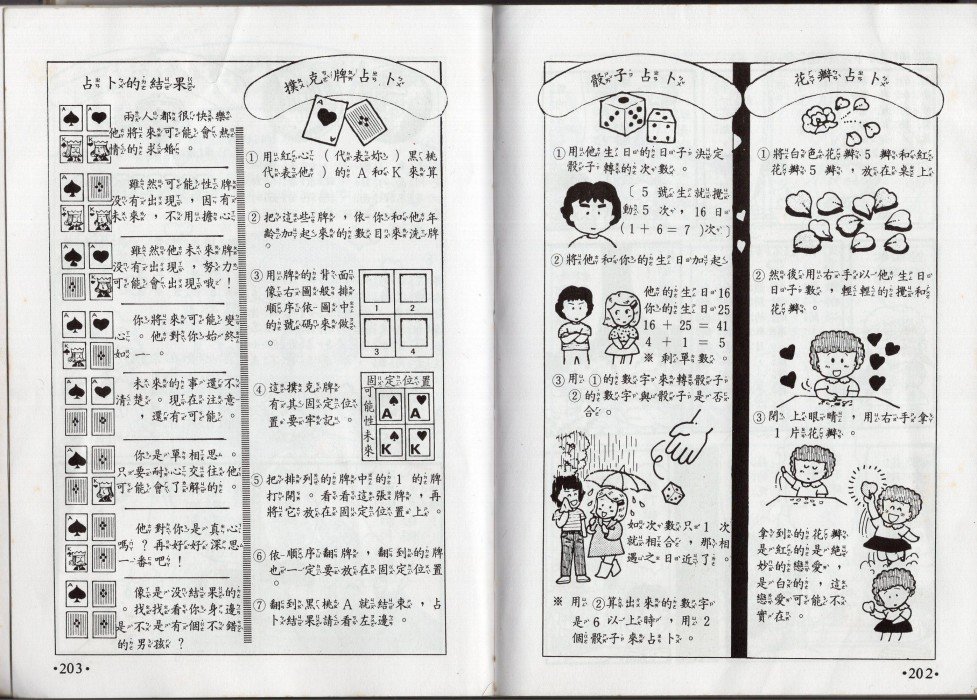 花瓣占卜
①將白色花瓣5瓣和紅
花瓣5瓣，放在桌上
。
②然後用右手以他生日
日子數，輕輕的攪和
花瓣。
③閉上眼睛，用右手拿
1片花瓣。
拿到的花瓣
是紅的是絕
妙的戀愛，
是白的，這
戀愛可能不
實在。
•202•
骰子占卜
①用他生日的日子決定
骰子轉的次數。
〔5號生就攪
動5次，16日
(1+6=7)次〕
②將他和你的生日加起
他的生日16
你的生日25
16+25=41
4+1=5
※剩單數。
③用①的數字來轉骰子
②的數字與骰子是否
合。
如次數只1次
就相合，那相
遇之日近了。
※用②算出來的數字
是6以上時，用2
個骰子來占卜。
撲克牌占卜
①用紅心（代表妳）黑桃
代表他）的A和K來算
。
②把這些牌，依你和他年
齡加起來的數目來洗牌
。
③用牌的背面
像右圖般排
順序依圖中
的號碼來做
。
1 2
3 4
④這撲克牌
有其固定位
置要牢記。
固定位置
可能性
未來
A A
K K
⑤把排列的牌中的1的牌
打開。看看這張牌，再
將它放在固定位置上。
⑥依順序翻牌，翻到的牌
也一定要放在固定位置
。
⑦翻到黑桃A就結束，占
卜結果請看左邊。
占卜的結果
兩人都很快樂
他將來可能會熱
情的求婚。
雖然可能性牌
沒有出現，因有
未來，不用擔心
雖然他未來牌
沒有出現，努力
可能會出現哦！
你將來可能變
心。他對你始終
如一。
未來的事還不
清楚。現在注意
，還有可能。
你是單相思。
只要耐心交往他
可能會了解的。
他對你是真心
嗎？再好好深思
一番吧！
像是沒結果的
。找找看你身邊
是不是有個不錯
的男孩？
•203•